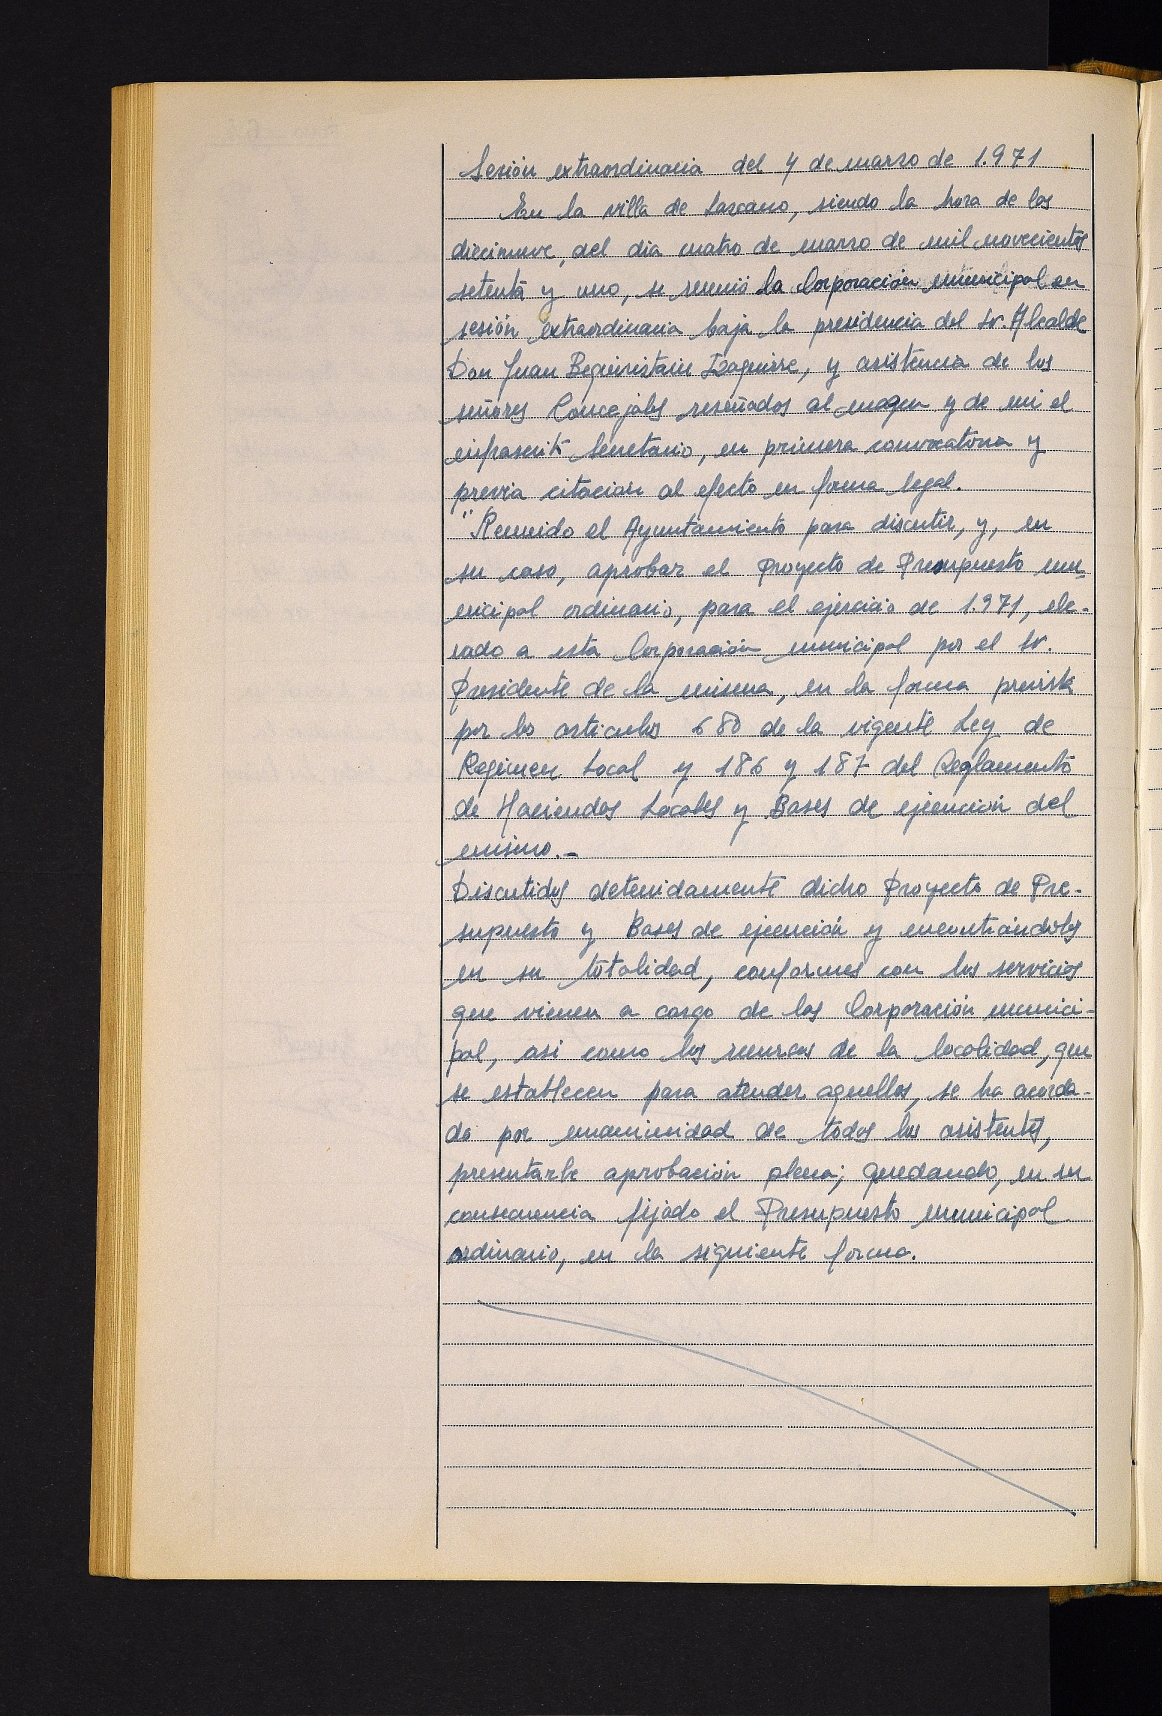 Sesión extraordinaria del 4 de marzo de 1.971
En la villa de Lazcano, siendo la hora de las
diecinueve, del dia cuatro de marzo de mil novecientos
setenta y uno, se reunió la Corporación municipal en
sesión extraordinaria baja la presidencia del Sr. Alcalde
Don Juan Beguiristain Izaguirre, y asistencia de los
señores Concejales reseñados al magen y de mi el
infrascrito Secretario, en primera convocatoria y
previa citación al efecto en forma legal.
"Reunido el Ayuntamiento para discutir, y, en
su caso, aprobar el Proyecto de Presupuesto mu-
nicipal ordinario, para el ejercicio de 1.971, ele-
vado a esta Corporación municipal por el Sr.
Presidente de la misma, en la forma prevista
por los articulos 680 de la vigente Ley de
Regimen Local y 186 y 187 del Reglamento
de Haciendas Locales y Bases de ejecución del
mismo.-
Discutidos detenidamente dicho Proyecto de Pre-
supuesto y Bases de ejecución y encontrándolos
en su totalidad, conformes con los servicios
que vienen a cargo de las Corporación munici-
pal, asi como los recursos de la localidad, que
se establecen para atender aquellos, se ha acorda-
do por unanimidad de todos los asistentes,
presentarle aprobación plena; quedando, en su
consecuencia fijado el Presupuesto municipal
ordinario, en la siguiente forma.